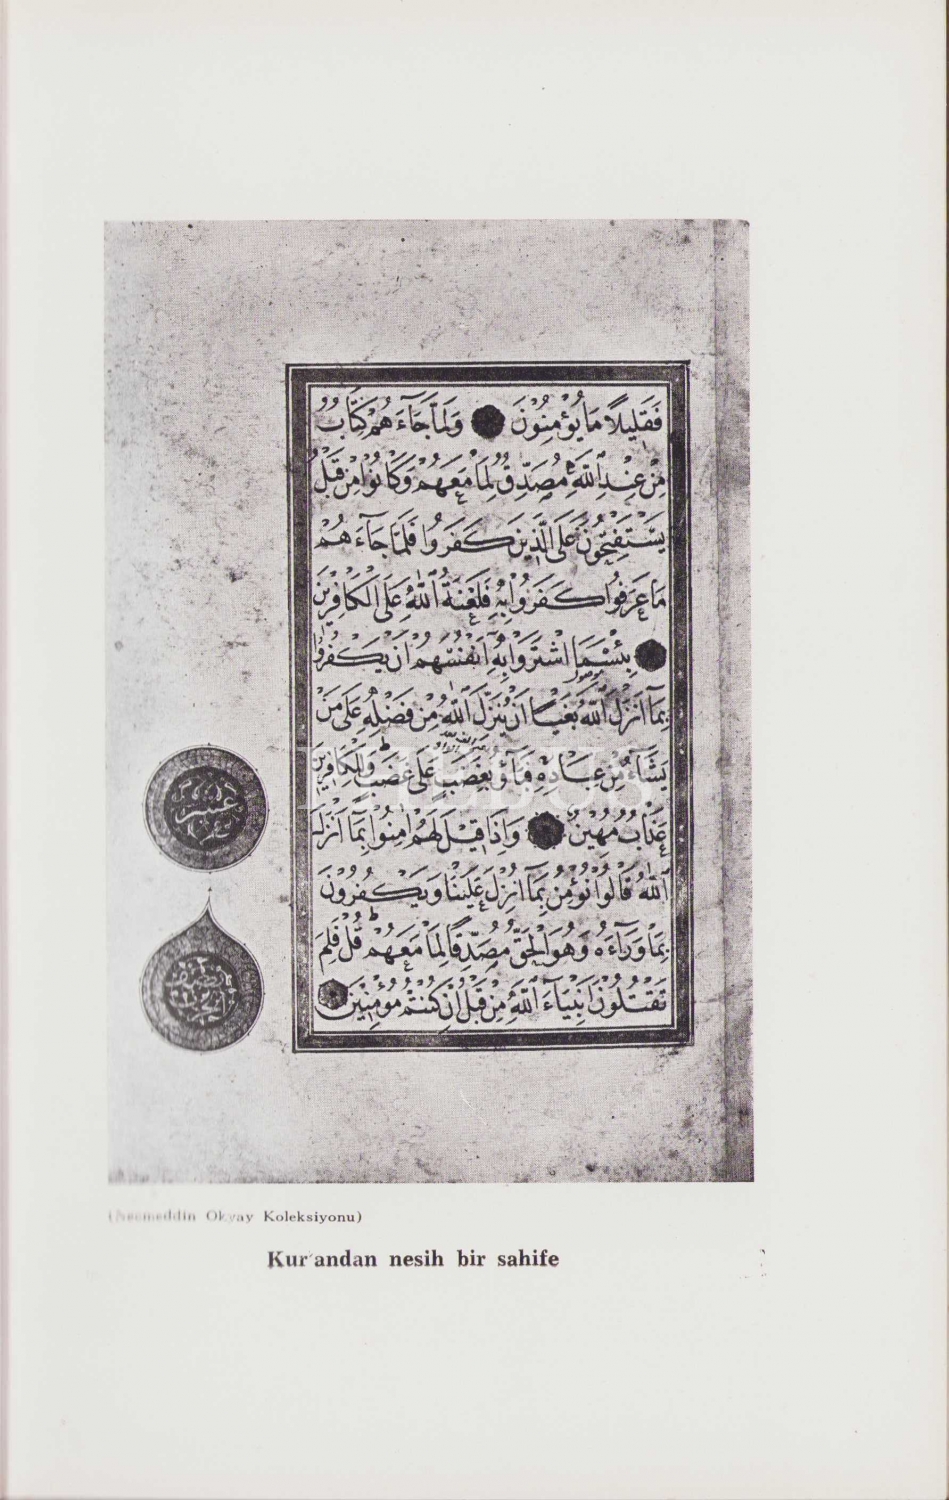 فَقَلِيلًا مَا يُؤْمِنُونَ وَلَمَّا جَآءَهُمْ كِتَابٌ
مِنْ عِنْدِ اللّٰهِ مُصَدِّقٌ لِمَا مَعَهُمْ وَكَانُوا مِنْ قَبْلُ
يَسْتَفْتِحُونَ عَلَى الَّذِينَ كَفَرُوا فَلَمَّا جَآءَهُمْ
مَا عَرَفُوا كَفَرُوا بِهِ فَلَعْنَةُ اللّٰهِ عَلَى الْكَافِرِينَ
بِئْسَمَا اشْتَرَوْا بِهِ اَنْفُسَهُمْ اَنْ يَكْفُرُوا
بِمَا اَنْزَلَ اللّٰهُ بَغْيًا اَنْ يُنَزِّلَ اللّٰهُ مِنْ فَضْلِهِ عَلَى مَنْ
يَشَآءُ مِنْ عِبَادِهِ فَبَآؤُ بِغَضَبٍ عَلَى غَضَبٍ وَلِلْكَافِرِينَ
عَذَابٌ مُهِينٌ وَاِذَا قِيلَ لَهُمْ اٰمِنُوا بِمَا اَنْزَلَ
اللّٰهُ قَالُوا نُؤْمِنُ بِمَا اُنْزِلَ عَلَيْنَا وَيَكْفُرُونَ
بِمَا وَرَآءَهُ وَهُوَ الْحَقُّ مُصَدِّقًا لِمَا مَعَهُمْ قُلْ فَلِمَ
تَقْتُلُونَ اَنْبِيَآءَ اللّٰهِ مِنْ قَبْلُ اِنْ كُنْتُمْ مُؤْمِنِينَ
عشر
(Necmeddin Okyay Koleksiyonu)
Kur'andan nesih bir sahife